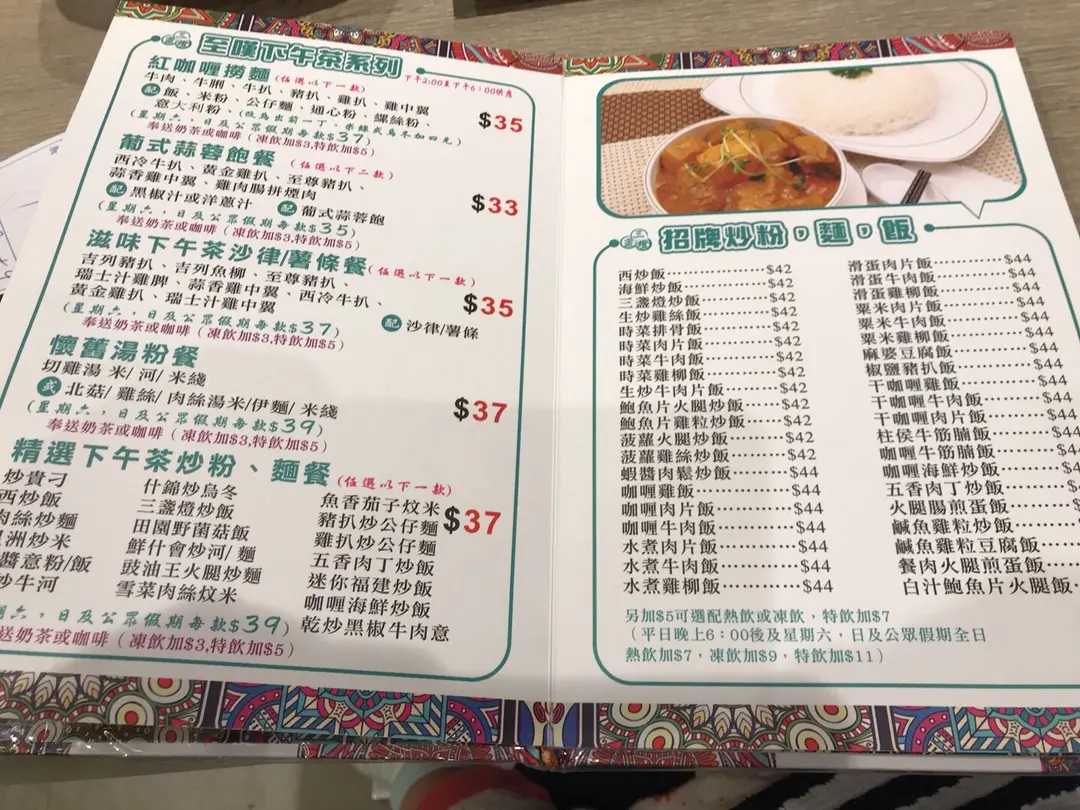 至嘆下午茶系列
下午2:00至下午6:00供應
紅咖喱撈麵(任選以下一款)
牛肉、牛脷、牛扒、豬扒、雞扒、雞中翼
配 飯、米粉、公仔麵、通心粉、螺絲粉、
意大利粉、(改為出前一丁、米線或烏冬加四元)
$35
(星期六，日及公眾假期每款$37)
奉送奶茶或咖啡(凍飲加$3,特飲加$5)
葡式蒜蓉飽餐 (任選以下二款)
西冷牛扒、黃金雞扒、至尊豬扒、
蒜香雞中翼、雞肉腸拼煙肉
配 黑椒汁或洋蔥汁 配 葡式蒜蓉飽
$33
(星期六，日及公眾假期每款$35)
奉送奶茶或咖啡(凍飲加$3,特飲加$5)
滋味下午茶沙律/薯條餐(任選以下一款)
吉列豬扒、吉列魚柳、至尊豬扒、
瑞士汁雞脾、蒜香雞中翼、西冷牛扒、
黃金雞扒、瑞士汁雞中翼
配 沙律/薯條
$35
(星期六，日及公眾假期每款$37)
奉送奶茶或咖啡(凍飲加$3,特飲加$5)
懷舊湯粉餐
切雞湯 米/ 河/ 米綫
或 北菇/ 雞絲/ 肉絲湯米/伊麵/ 米綫
$37
(星期六，日及公眾假期每款$39)
奉送奶茶或咖啡(凍飲加$3,特飲加$5)
精選下午茶炒粉、麵餐(任選以下一款)
炒貴刁
西炒飯
肉絲炒麵
洲炒米
醬意粉/飯
炒牛河
什錦炒烏冬
三盞燈炒飯
田園野菌菇飯
鮮什會炒河/ 麵
豉油王火腿炒麵
雪菜肉絲炆米
魚香茄子炆米
豬扒炒公仔麵
雞扒炒公仔麵
五香肉丁炒飯
迷你福建炒飯
咖喱海鮮炒飯
乾炒黑椒牛肉意
$37
期六，日及公眾假期每款$39)
送奶茶或咖啡(凍飲加$3,特飲加$5)
招牌炒粉，麵，飯
西炒飯··············$42
海鮮炒飯············$42
三盞燈炒飯··········$42
生炒雞絲飯··········$42
時菜排骨飯··········$42
時菜肉片飯··········$42
時菜牛肉飯··········$42
時菜雞柳飯··········$42
生炒牛肉片飯········$42
鮑魚片火腿炒飯······$42
鮑魚片雞粒炒飯······$42
菠蘿火腿炒飯········$42
菠蘿雞絲炒飯········$42
蝦醬肉鬆炒飯········$44
咖喱雞飯············$44
咖喱肉片飯··········$44
咖喱牛肉飯··········$44
水煮肉片飯··········$44
水煮牛肉飯··········$44
水煮雞柳飯··········$44
滑蛋肉片飯··········$44
滑蛋牛肉飯··········$44
滑蛋雞柳飯··········$44
粟米肉片飯··········$44
粟米牛肉飯··········$44
粟米雞柳飯··········$44
麻婆豆腐飯··········$44
椒鹽豬扒飯··········$44
干咖喱雞飯··········$44
干咖喱牛肉飯········$44
干咖喱肉片飯········$44
柱侯牛筋腩飯········$44
咖喱牛筋腩飯········$4
咖喱海鮮炒飯········$4
五香肉丁炒飯········$
火腿腸煎蛋飯········$
鹹魚雞粒炒飯········
鹹魚雞粒豆腐飯······
餐肉火腿煎蛋飯······
白汁鮑魚片火腿飯····
另加$5可選配熱飲或凍飲，特飲加$7
(平日晚上6：00後及星期六，日及公眾假期全日
熱飲加$7，凍飲加$9，特飲加$11)